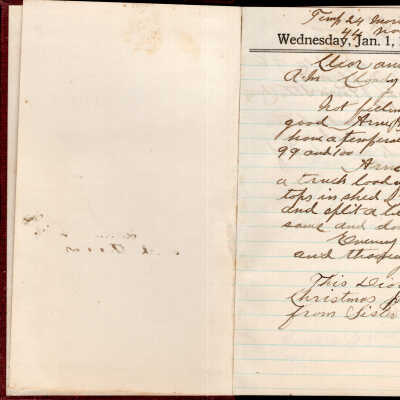 Temp 24 mor
44 no
Wednesday, Jan. 1,
Clear an
A.M. Cloudy
Not feelin
good Arne
have a tempera
99 and 100
Arne
a truck load o
tops in shed
and split a li
some and do
Evening
and
This Dia
Christmas
from Sister